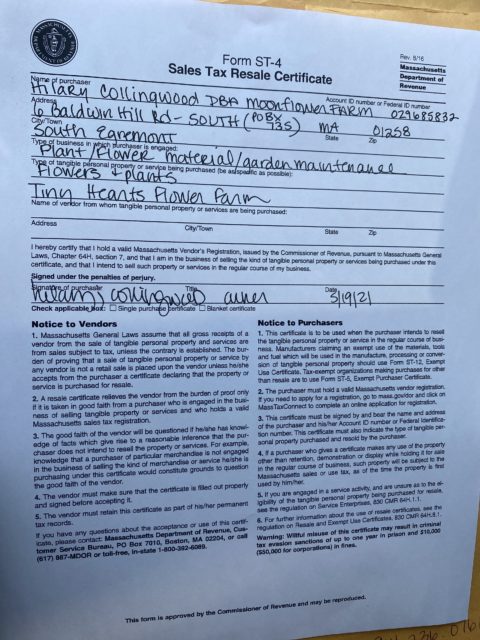 Form ST-4
Sales Tax Resale Certificate
Rev. 8/16
Massachusetts
Department of
Revenue
Name of purchaser
Hilary Collingwood DBA moonflower FARM
Account ID number or Federal ID number
029685832
Address
6 Baldwin Hill Rd - SOUTH (PO BX 735) MA 01258
City/Town State Zip
South Egremont
Type of business in which purchaser is engaged:
Plant/Flower material/garden maintenance
Type of tangible personal property or service being purchased (be as specific as possible):
Flowers + plants
Tiny Hearts Flower Farm
Name of vendor from whom tangible personal property or services are being purchased:
Address City/Town State Zip
I hereby certify that I hold a valid Massachusetts Vendor's Registration, issued by the Commissioner of Revenue, pursuant to Massachusetts General
Laws, Chapter 64H, section 7, and that I am in the business of selling the kind of tangible personal property or services being purchased under this
certificate, and that I intend to sell such property or services in the regular course of my business.
Signed under the penalties of perjury.
Signature of purchaser Title Date
Hilary Collingwood owner 3/9/21
Check applicable box: Single purchase certificate Blanket certificate
Notice to Vendors
1. Massachusetts General Laws assume that all gross receipts of a
vendor from the sale of tangible personal property and services are
from sales subject to tax, unless the contrary is established. The bur-
den of proving that a sale of tangible personal property or service by
any vendor is not a retail sale is placed upon the vendor unless he/she
accepts from the purchaser a certificate declaring that the property or
service is purchased for resale.
2. A resale certificate relieves the vendor from the burden of proof only
if it is taken in good faith from a purchaser who is engaged in the busi-
ness of selling tangible property or services and who holds a valid
Massachusetts sales tax registration.
3. The good faith of the vendor will be questioned if he/she has knowl-
edge of facts which give rise to a reasonable inference that the pur-
chaser does not intend to resell the property or services. For example,
knowledge that a purchaser of particular merchandise is not engaged
in the business of selling the kind of merchandise or service he/she is
purchasing under this certificate would constitute grounds to question
the good faith of the vendor.
4. The vendor must make sure that the certificate is filled out properly
and signed before accepting it.
5. The vendor must retain this certificate as part of his/her permanent
tax records.
If you have any questions about the acceptance or use of this certif-
icate, please contact: Massachusetts Department of Revenue, Cus-
tomer Service Bureau, PO Box 7010, Boston, MA 02204, or call
(617) 887-MDOR or toll-free, in-state 1-800-392-6089.
Notice to Purchasers
1. This certificate is to be used when the purchaser intends to resell
the tangible personal property or service in the regular course of busi-
ness. Manufacturers claiming an exempt use of the materials, tools
and fuel which will be used in the manufacture, processing or conver-
sion of tangible personal property should use Form ST-12, Exempt
Use Certificate. Tax-exempt organizations making purchases for other
than resale are to use Form ST-5, Exempt Purchaser Certificate.
2. The purchaser must hold a valid Massachusetts vendor registration.
If you need to apply for a registration, go to mass.gov/dor and click on
MassTaxConnect to complete an online application for registration.
3. This certificate must be signed by and bear the name and address
of the purchaser and his/her Account ID number or Federal Identifica-
tion number. This certificate must also indicate the type of tangible per-
sonal property purchased and resold by the purchaser.
4. If a purchaser who gives a certificate makes any use of the property
other than retention, demonstration or display while holding it for sale
in the regular course of business, such property will be subject to the
Massachusetts sales or use tax, as of the time the property is first
used by him/her.
5. If you are engaged in a service activity, and are unsure as to the el-
igibility of the tangible personal property being purchased for resale,
see the regulation on Service Enterprises, 830 CMR 64H.1.1.
6. For further information about the use of resale certificates, see the
regulation on Resale and Exempt Use Certificates, 830 CMR 64H.8.1.
Warning: Willful misuse of this certificate may result in criminal
tax evasion sanctions of up to one year in prison and $10,000
($50,000 for corporations) in fines.
This form is approved by the Commissioner of Revenue and may be reproduced.